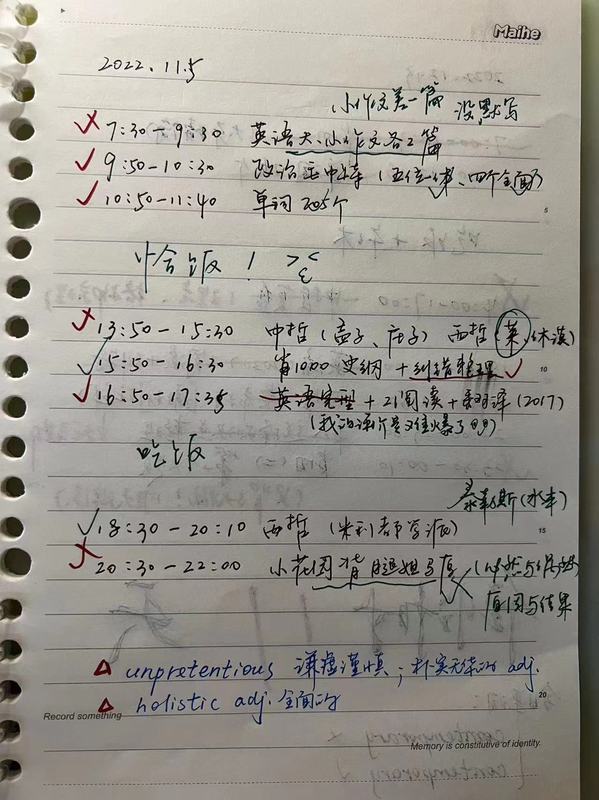 Maihe
2022.11.5
小作文差一篇 没默写
7:30-9:30 英语大、小作文各2篇
9:50-10:30 政治毛中特（五位一体、四个全面）
10:50-11:40 单词205个
恰饭！
13:50-15:30 中哲（孟子、庄子）西哲（莱、休谟）
15:50-16:30 肖1000 史纲+纠错整理
16:50-17:35 英语完型+21阅读+翻译（2017）
（我的评价是又佳爆了
吃饭
泰勒斯（水本）
18:30-20:10 西哲（米利都学派）
20:30-22:00 小花园背腿姐马原（必然与偶然
原因与结果
unpretentious 谦虚谨慎；朴实无华的 adj.
holistic adj. 全面的
Record something
Memory is constitutive of identity.
5
10
15
20